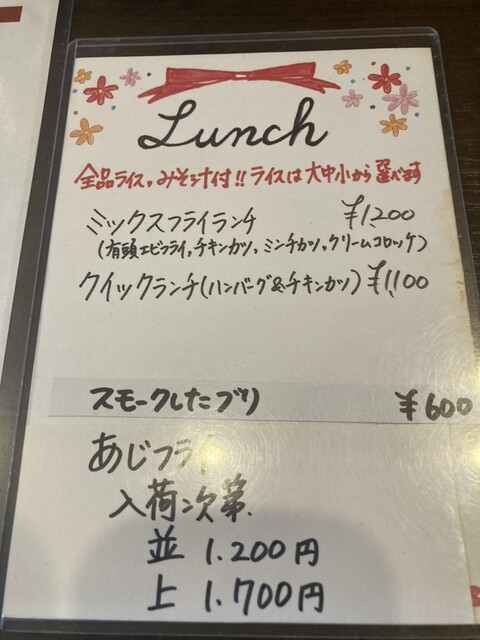 Lunch
全品ライス,みそ汁付!!ライスは大中小から選べます
ミックスフライランチ ¥1,200
(有頭エビフライ,チキンカツ,ミンチカツ,クリームコロッケ)
クイックランチ(ハンバーグ&チキンカツ) ¥1,100
スモークしたブリ ¥600
あじフライ
入荷次第.
並 1.200円
上 1.700円